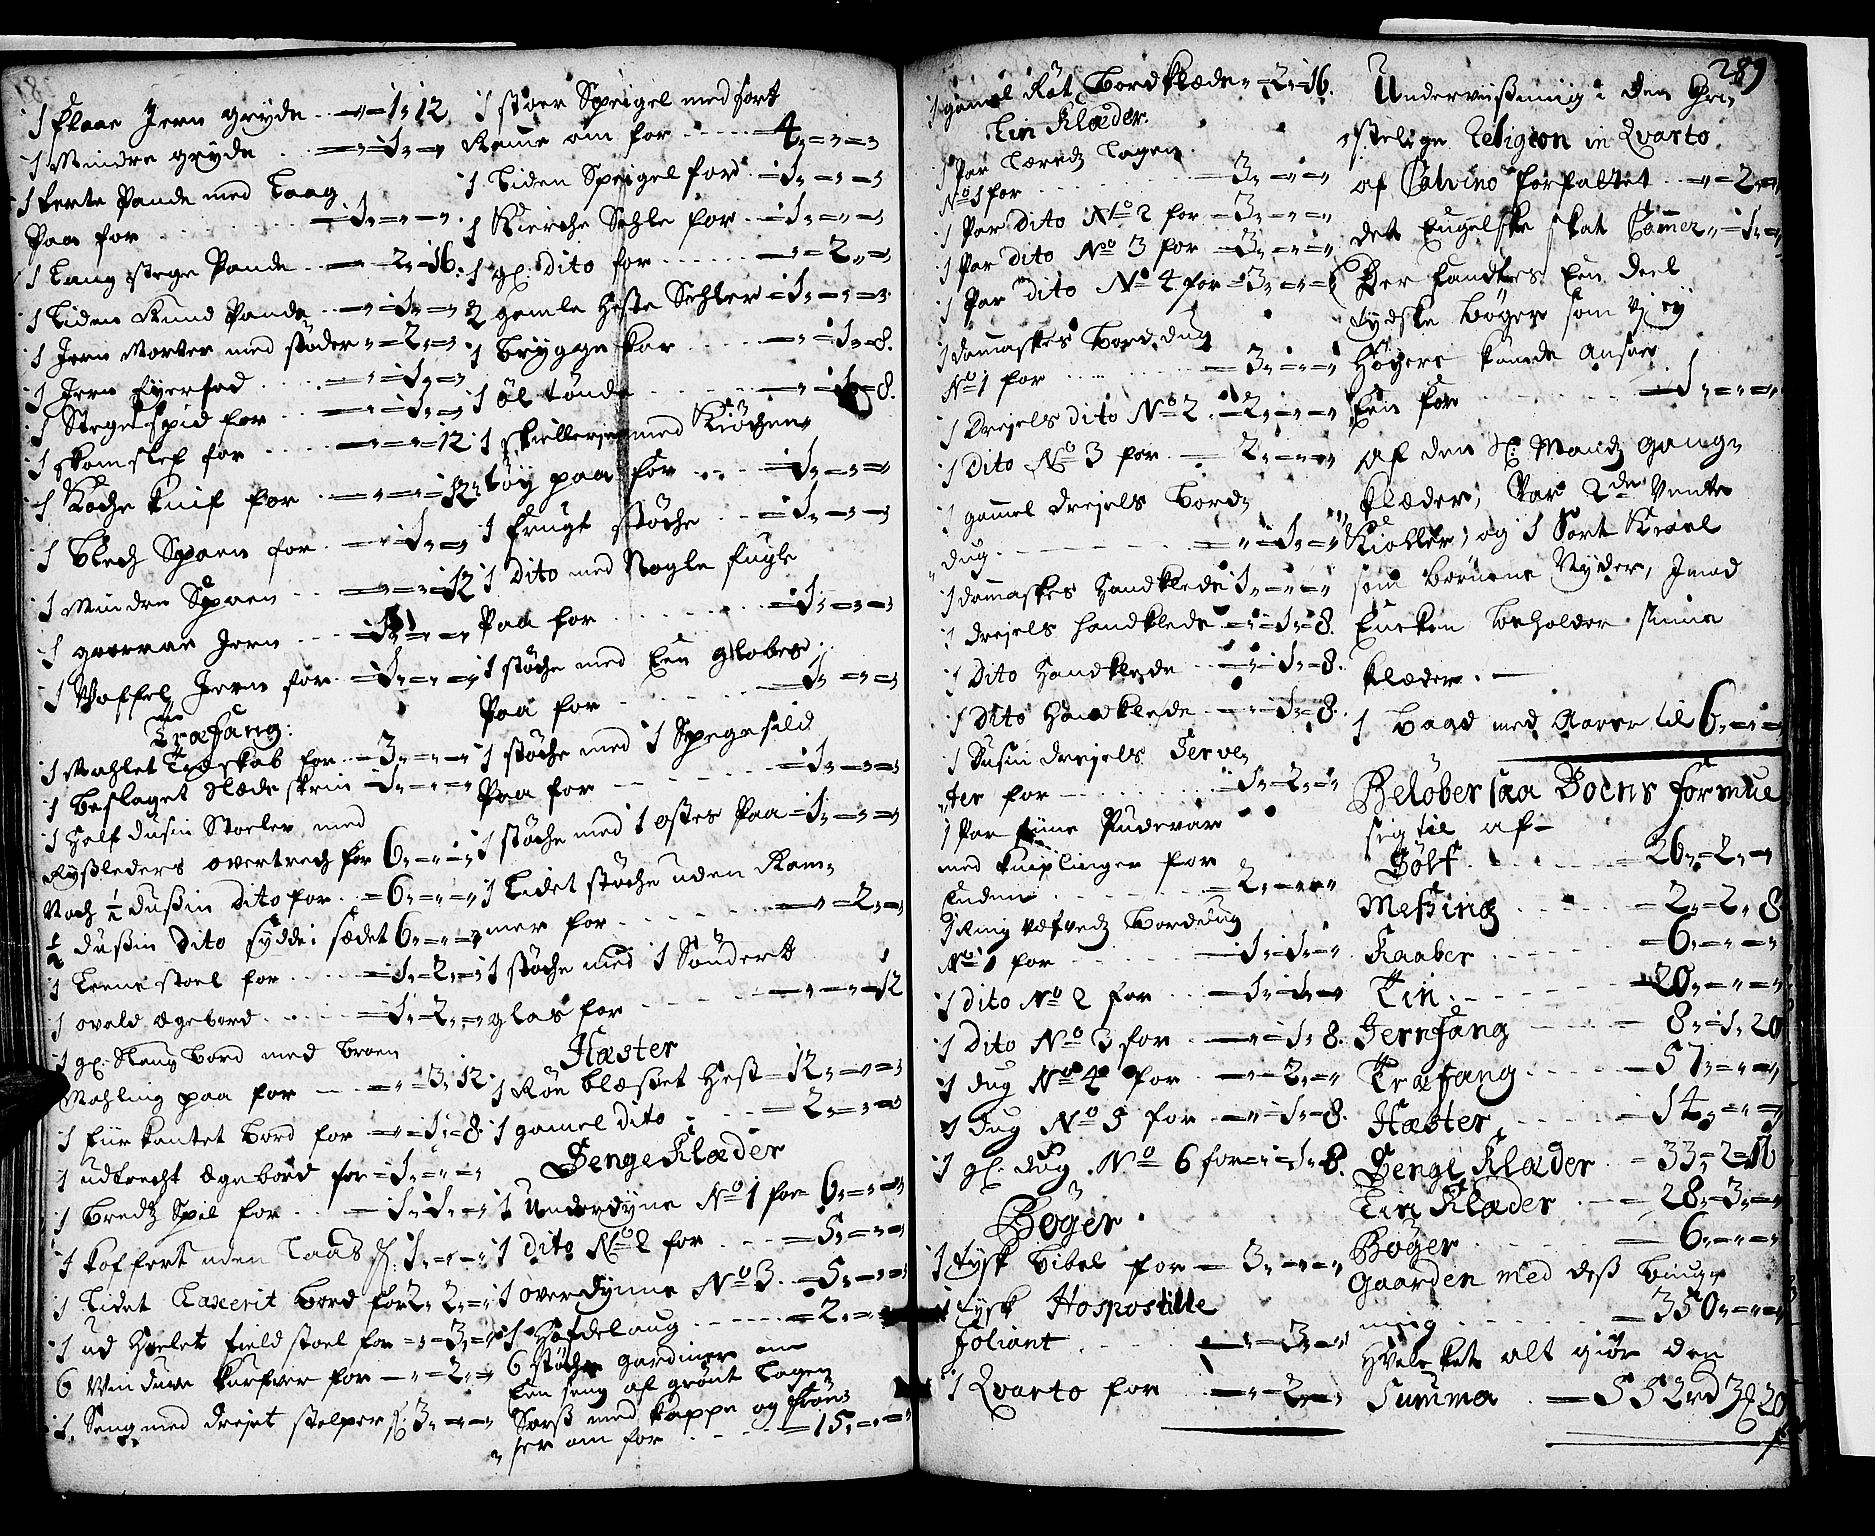 1 flaae Jern gryde - - „=1„12
1 Mindre gryde - „=1„=„
1 ferte Pande med Laag
Paa for - - - =1„=„=„
1 Lang stege Pande - „=2„16.
1 Liden Rund Pande - „=1„=„
1 Jern Morter med støder „=2„=„
1 Jern Fyerfad - - „=1„=„
1 Stege spid for - - „=1„=„
1 skomslef for - - „=„=12
1 Koche knif for - „=„=12
1 Blech Spaen for - „=1„=„
1 Mindre Spaen - - „=„=12
1 goeraae Jern - - =1„=„=„
1 Vaffel Jern for - =1„=„=„
Træfang:
1 Mahlet skab for - =3„=„=„
1 Beslaget Slæde skrin =1„=„=„
1 Half dusin Stoeler med
Rysleders overtrech for 6„=„=„
Noch ½ dusin dito for - =6„=„=„
½ dusin dito sydde i sædet 6„=„=„
1 Leene stoel for - - =1„=2„=„
1 ovald ægebord - - =1„=2„=„
1 gl: Steng Bord med Broen
Mahling paa for - „=3„12
1 fiirkantet Bord for „=1„=8.
1 udtrecht ægebord for =1„=„=„
1 Bredt Spil for - - =1„=1„=„
1 koffert uden Laas for 1„=„=„
1 Lidet Laxerit Bord for 2„2„=„
1 ud Hælet field stoel for „=3„=„
6 Vindue kurfver for - „=2„=„
1 Seng med drejet stolper for 3„=„=„
1 stoer Speigel med sort
Ramme om for - - - 4„=„=„
1 Liden Speigel for - =1„=„=„
1 Kierche Sehle for - =1„=„=„
1 gl: dito for - - - „=2„=„
2 gamle Heste Sehler =1„=„=„
1 Bryggekar - - - „=1„=8.
1 øl tønde - - - „=1„=8.
1 skillerie med Kiøchen
tøy paa for - - =1„=„=„
1 Frugt støche - =1„=„=„
1 dito med Nogle fugle
Paa for - - - =1„=„=„
1 støche med Een globes
Paa for - - - =1„=„=„
1 støche med 1 Spegesild
Paa for - - - =1„=„=„
1 støche med 1 ostes Paa =1„=„=„
1 Lidet støche uden Ram„
mer for - - - „=2„=„
1 støche med 1 Søndert
glas for - - - „=„=12
Hæster
1 Røe blæsset Hest - 12„=„=„
1 gamel dito - - =2„=„=„
Senge Klæder
1 Underdyne No 1 for 6„=„=„
1 dito No 2 for - =5„=„=„
1 overdynne No 3. =5„=„=„
1 Hofdelaug - - =2„=„=„
6 støcher gardiner om
Een seng af grønt Lagen
Sars med kappe og Frøn„
ser om for - - =15„=„=„
1 gamel Røt Bordklæde „=2„16.
Lin Klæder.
1 Par Lærretz Lagen
No 1 for - - - 3„=„=„
1 Par dito No 2 for - 3„=„=„
1 Par dito No 3 for - 3„=„=„
1 Par dito No 4 for - 3„=„=„
1 damaskes Bord dug
No 1 for - - - 3„=„=„
1 Drejels dito No 2 - 2„=„=„
1 Dito No 3 for - 2„=„=„
1 gammel drejels Bord„
dug - - - „=1„=„
1 damaskes Handklede 1„=„=„
1 drejels handklede „=1„=8.
1 Dito Handklede - „=1„=8.
1 Dito Handklede - „=1„=8.
1 Dusin drejels Servie„
ter for - - - =1„=2„=„
1 Par fiine Pudevar
med kniplinger for
Enden - - - =2„=„=„
1 Ring vefvedz Borddug
No 1 for - - =1„=1„=„
1 dito No 2 for - =1„=1„=„
1 Dito No 3 for - „=1„=8.
1 dug No 4 for - „=2„=„
1 dug No 5 for - „=1„=8.
1 gl: dug No 6 for „=1„=8.
Bøger.
1 tysk Bibel for - 3„=„=„
1 tysk Hospostille
foliant - - - „=3„=„
1 Qvarto for - - „=2„=„
289
Underviisning i den Chri„
stelige Religion in Qvarto
af Calvino forfattet - „=2„=„
det Engelske skat Camer „=1„=„
Der fandtes Een deel
tydske Bøger som vj ey
Høyere kunde ansee
End for - - - =1„=„=„
af den Sl: Mandz gang„
klæder, Par 2de Vinter
Kioller, og 1 Sort Kioel
som Børnene Nyder, Imod
Encken beholder sinne
klæder. -
1 Baad med Aarer til 6„=„=„
Beløber saa Boens formue
sig til af -
Sølf - - - 26„=2„=„
Messing - - 2„=2„8
Kaaber - - 6„=„=„
Tin - - - 20„=„=„
Jernfang - - 8„=1„20
Træfang - - 57„=„=„
Hæster - - 14„=„=„
Senge Klæder - 33„2„16
Lin Klæder - 28„=3„=„
Bøger - - 6„=„=„
Gaarden med dess Byg„
ning - - - 350„=„=„
Hvilcket alt giør den
Summa - 552rd 3 20